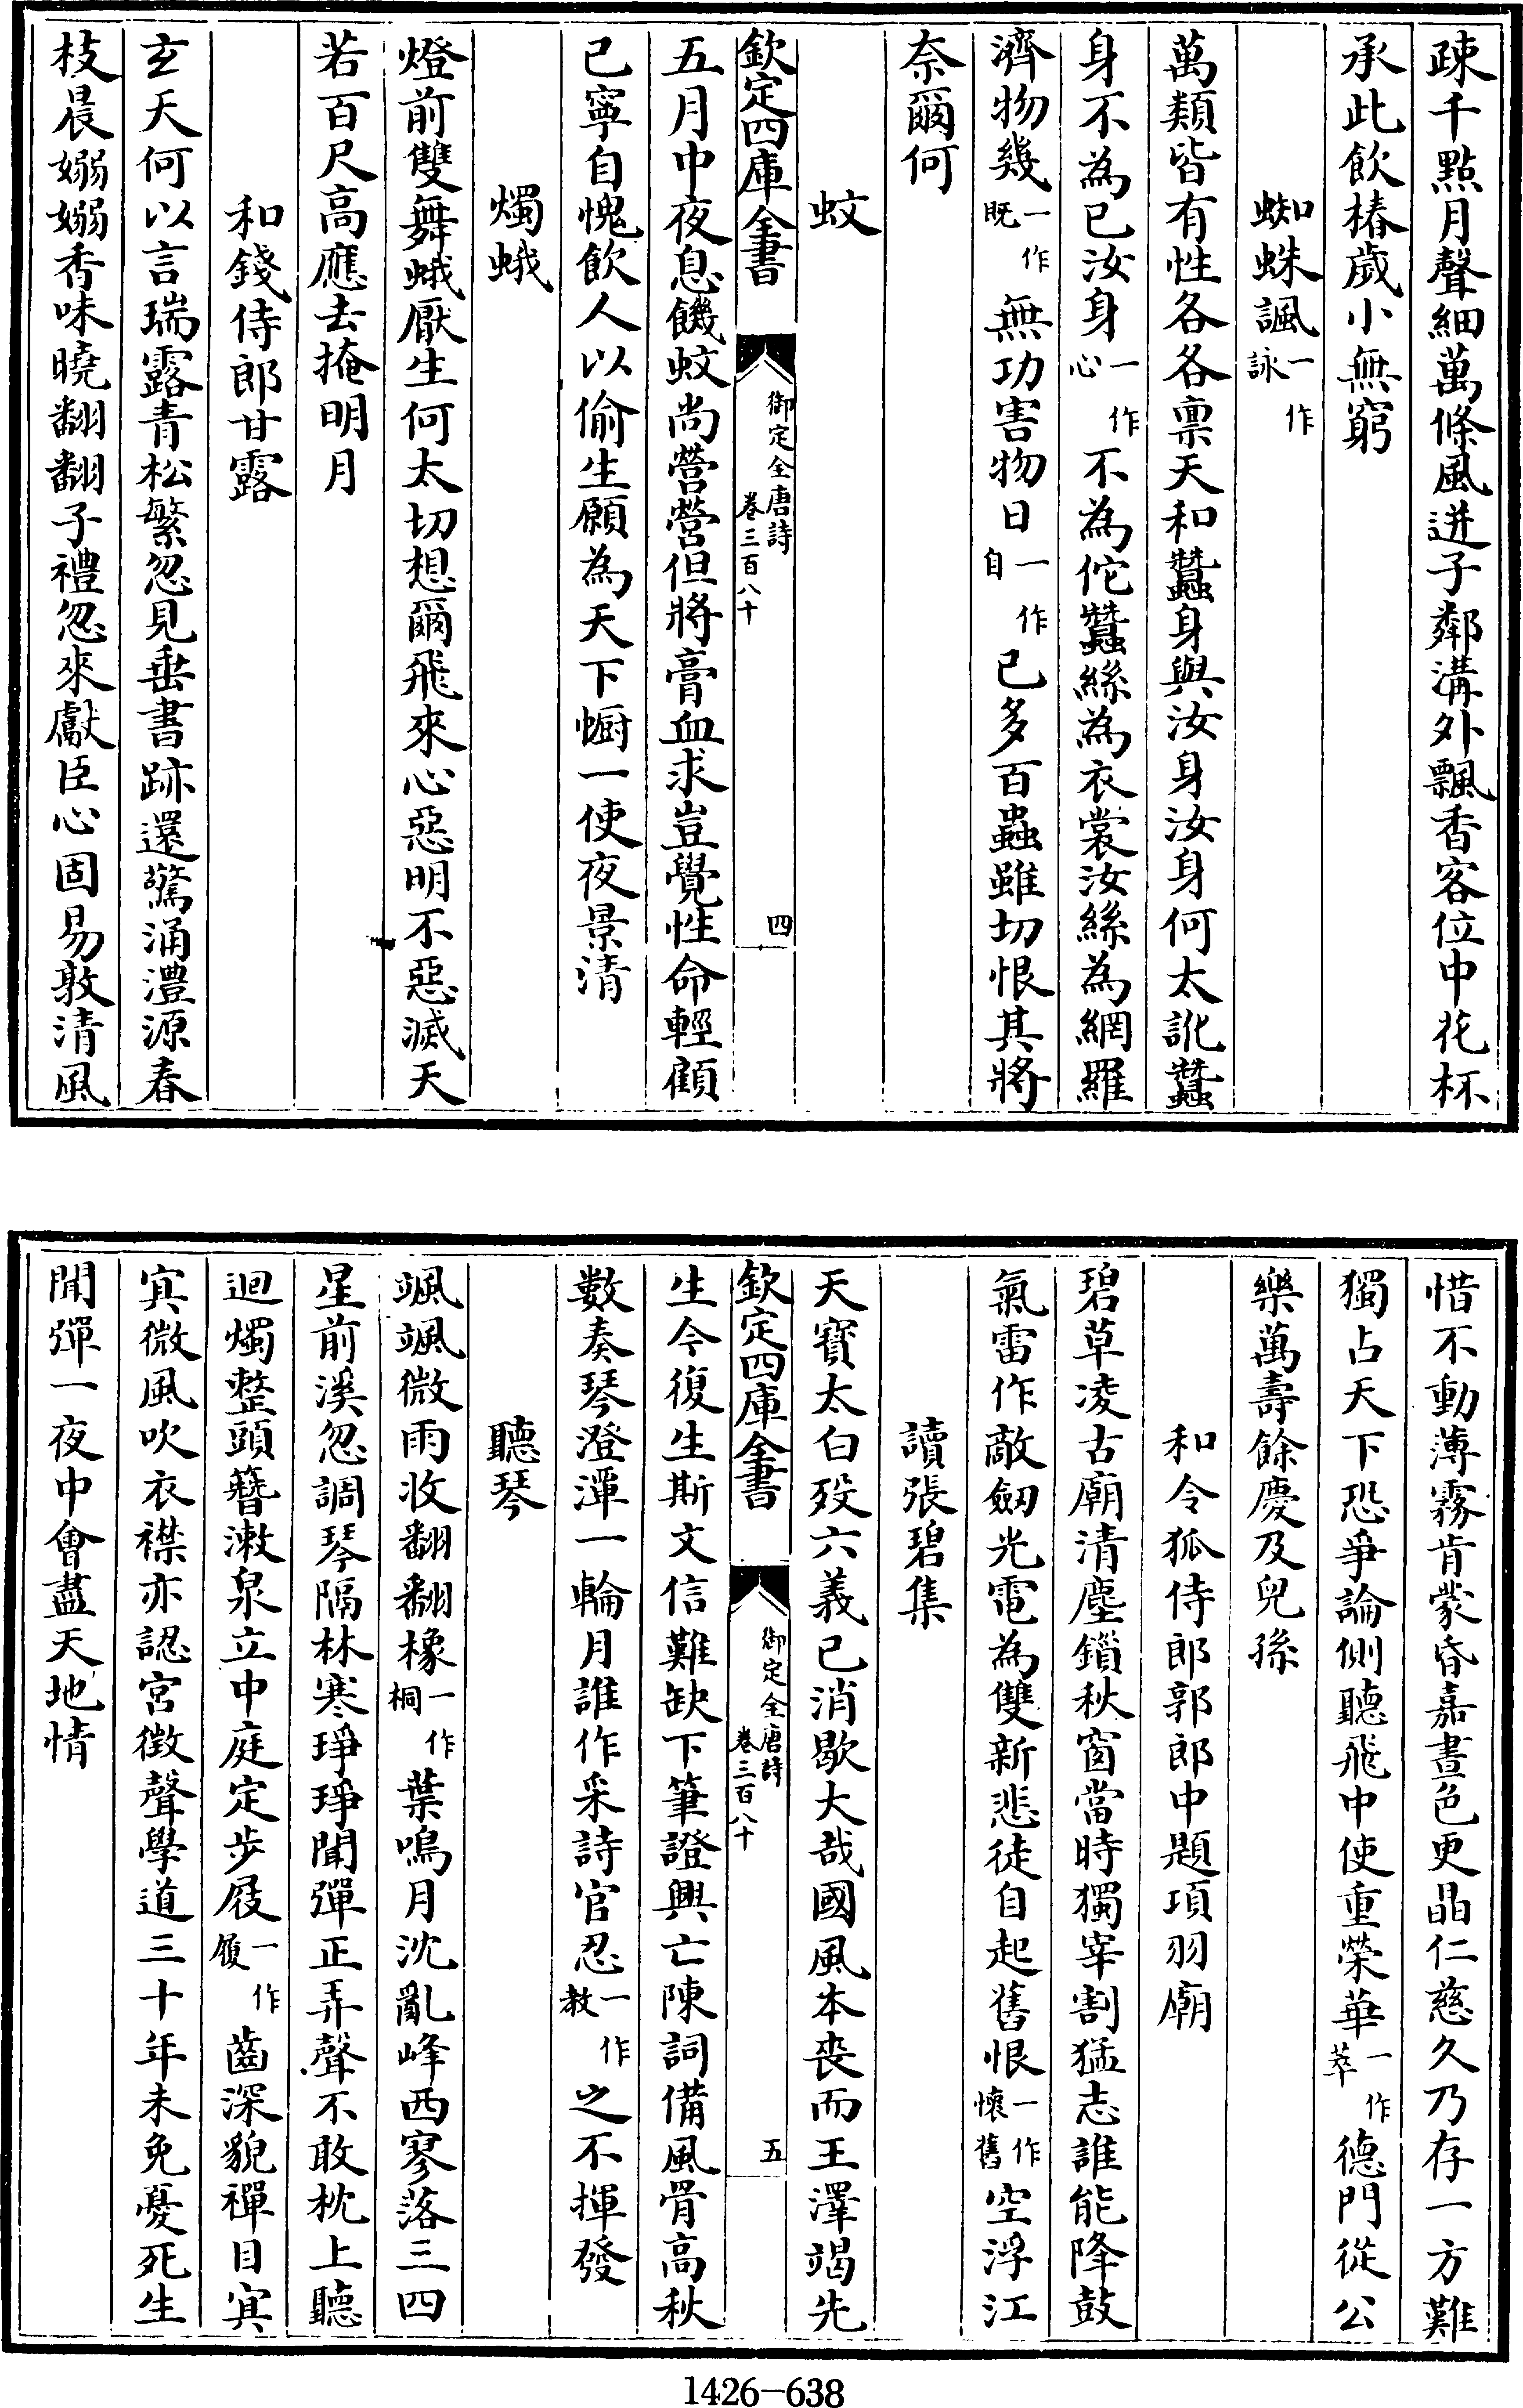 疎千點月聲細萬條風迸子鄰溝外飄香客位中花杯
承此飲椿歲小無窮
蜘蛛諷一作詠
萬類皆有性各各禀天和蠶身與汝身汝身何太訛蠶
身不為已汝身一作心不為佗蠶絲為衣裳汝絲為網羅
濟物幾一作既無功害物日一作自已多百蟲雖切恨其將
奈爾何
蚊
欽定四庫全書 御定全唐詩 卷三百八十 四
五月中夜息饑蚊尚營營但將膏血求豈覺性命輕顧
已寧自愧飲人以偷生願為天下㡡一使夜景清
燭蛾
燈前雙舞蛾厭生何太切想爾飛來心惡明不惡滅天
若百尺高應去掩明月
和錢侍郎甘露
玄天何以言瑞露青松繁忽見垂書跡還驚涌澧源春
枝晨嫋嫋香味曉翻翻子禮忽來獻臣心固易敦清風
惜不動薄霧肯蒙昏嘉晝色更晶仁慈久乃存一方難
獨占天下恐爭論側聽飛中使重榮華一作萃德門從公
樂萬壽餘慶及兒孫
和令狐侍郎郭郎中題項羽廟
碧草凌古廟清塵鎖秋窗當時獨宰割猛志誰能降鼓
氣雷作敵劒光電為雙新悲徒自起舊恨一作懷舊空浮江
讀張碧集
天寶太白歿六義已消歇大哉國風本喪而王澤竭先
欽定四庫全書 御定全唐詩 卷三百八十 五
生今復生斯文信難缺下筆證興亡陳詞備風骨高秋
數奏琴澄潭一輪月誰作采詩官忍一作教之不揮發
聽琴
颯颯微雨收翻翻橡一作桐葉鳴月沈亂峰西寥落三四
星前溪忽調琴隔林寒琤琤聞彈正弄聲不敢枕上聽
迴燭整頭簪漱泉立中庭定步屐一作履齒深貌禪目㝠
㝠微風吹衣襟亦認宮徵聲學道三十年未免憂死生
聞彈一夜中會盡天地情
1426-638